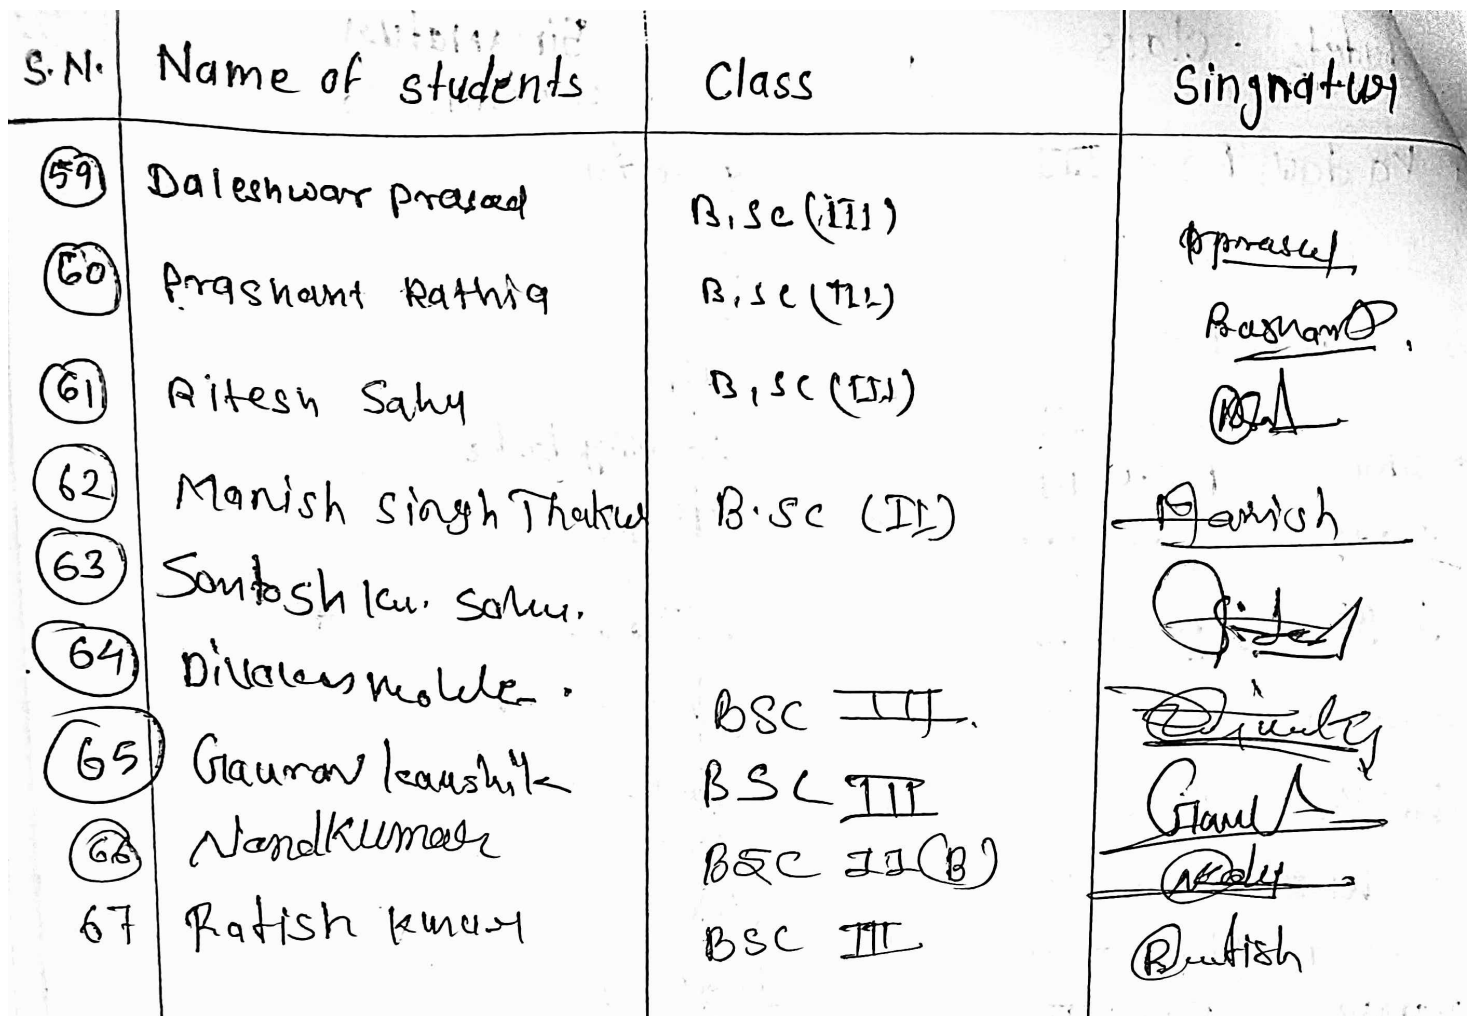 S.N. Name of students Class Singnatur
59 Daleshwar prasad B.Sc (III) Dprasad
60 Prashant Rathia B.Sc (III) Prashant
61 Ritesh Sahu B.Sc (III)
62 Manish Singh Thakur B.Sc (II) Manish
63 Santosh ku. Sahu.
64 BSC III
65 Gaurav kaushik BSC III Gaurav
66 Nandkumar BSC II (B)
67 Ratish kumar BSC III Ratish